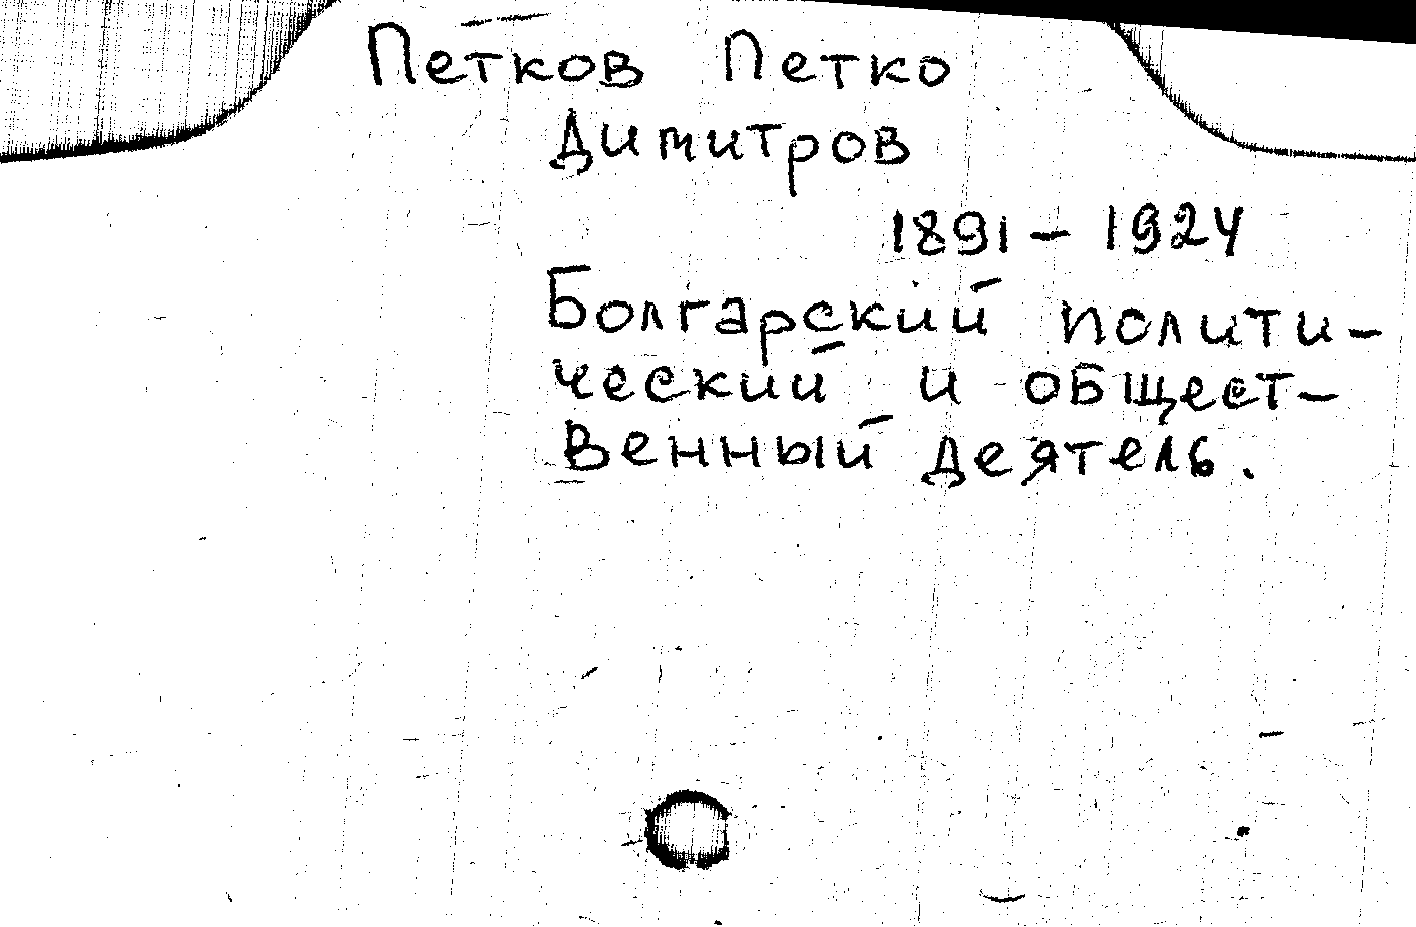 Петков Петко
Димитров
1891 - 1924
Болгарский полити-
ческий и общест-
венный деятель.